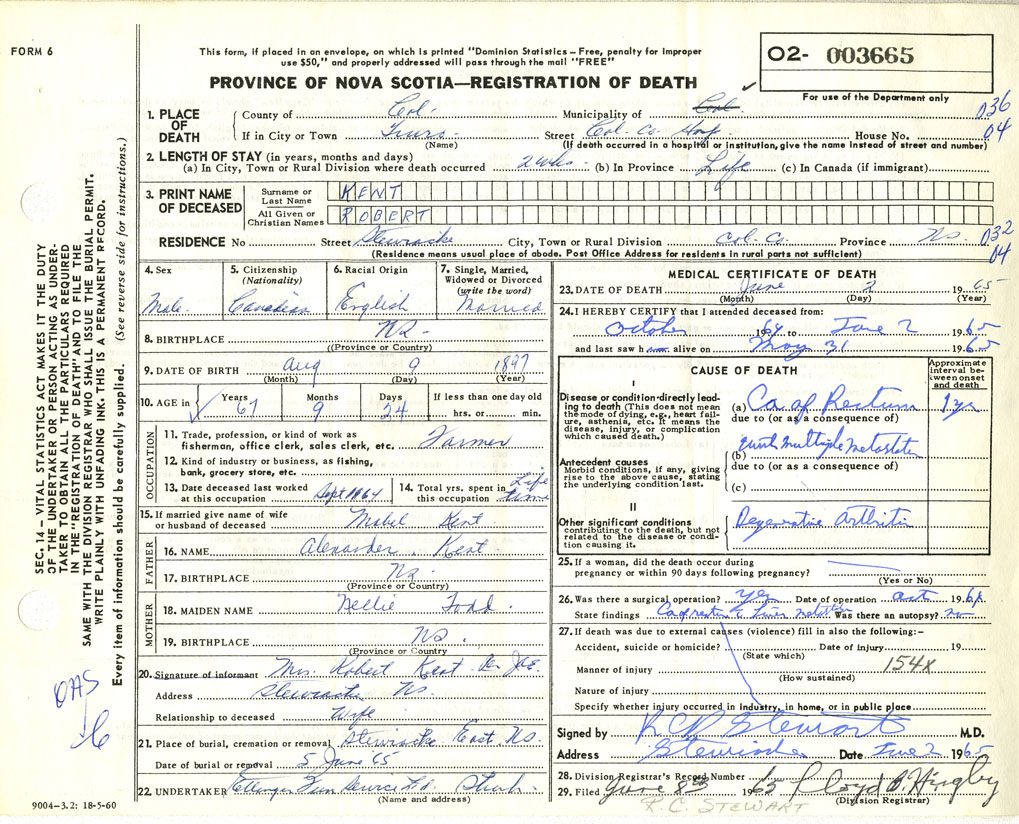 FORM 6
This form, if placed in an envelope, on which is printed "Dominion Statistics – Free, penalty for improper
use $50," and properly addressed will pass through the mail "FREE"
PROVINCE OF NOVA SCOTIA—REGISTRATION OF DEATH
O2- 003665
For use of the Department only
1. PLACE OF DEATH
County of Col. Municipality of Col. 036
If in City or Town Truro. Street Col. Co. Hosp. House No. 04
(Name) (If death occurred in a hospital or institution, give the name instead of street and number)
2. LENGTH OF STAY (in years, months and days)
(a) In City, Town or Rural Division where death occurred 2 wks. (b) In Province Life (c) In Canada (if immigrant)
3. PRINT NAME OF DECEASED
Surname or Last Name KENT
All Given or Christian Names ROBERT
RESIDENCE No Street Stewiacke City, Town or Rural Division Col. Co. Province NS. 032
(Residence means usual place of abode. Post Office Address for residents in rural parts not sufficient) 04
4. Sex Male.
5. Citizenship (Nationality) Canadian
6. Racial Origin English
7. Single, Married, Widowed or Divorced (write the word) Married
8. BIRTHPLACE NS.
((Province or Country)
9. DATE OF BIRTH Aug 9 1897
(Month) (Day) (Year)
10. AGE in Years 67 Months 9 Days 24 If less than one day old hrs. or min.
OCCUPATION
11. Trade, profession, or kind of work as fisherman, office clerk, sales clerk, etc. Farmer
12. Kind of industry or business, as fishing, bank, grocery store, etc.
13. Date deceased last worked at this occupation Sept 1964
14. Total yrs. spent in this occupation Life time
15. If married give name of wife or husband of deceased Mabel Kent
FATHER
16. NAME Alexander. Kent
17. BIRTHPLACE NS.
(Province or Country)
MOTHER
18. MAIDEN NAME Nellie Todd.
19. BIRTHPLACE NS.
(Province or Country)
20. Signature of informant Mrs. Robert Kent
Address Stewiacke NS.
Relationship to deceased Wife
21. Place of burial, cremation or removal Stewiacke East. NS.
Date of burial or removal 5 June 65
22. UNDERTAKER Ettinger Fun Service Ltd
(Name and address)
MEDICAL CERTIFICATE OF DEATH
23. DATE OF DEATH June 2 1965
(Month) (Day) (Year)
24. I HEREBY CERTIFY that I attended deceased from:
October 1964 to June 2 1965
and last saw h alive on May 31 1965
CAUSE OF DEATH
Approximate interval between onset and death
I
Disease or condition directly leading to death (This does not mean the mode of dying, e.g., heart failure, asthenia, etc. It means the disease, injury, or complication which caused death.)
(a) Ca of Rectum 1 yr
due to (or as a consequence of)
(b) with multiple metastates
Antecedent causes
Morbid conditions, if any, giving rise to the above cause, stating the underlying condition last.
due to (or as a consequence of)
(c)
II
Other significant conditions contributing to the death, but not related to the disease or condition causing it.
Degenerative Arthritis
25. If a woman, did the death occur during pregnancy or within 90 days following pregnancy?
(Yes or No)
26. Was there a surgical operation? yes Date of operation Oct 1964
State findings Ca of rectum Liver metastates Was there an autopsy? no
27. If death was due to external causes (violence) fill in also the following:–
Accident, suicide or homicide? Date of injury 19
(State which)
Manner of injury 154X
(How sustained)
Nature of injury
Specify whether injury occurred in industry, in home, or in public place
Signed by R C Stewart M.D.
Address Stewiacke Date June 2 1965
28. Division Registrar's Record Number
29. Filed June 8th 1965 Lloyd B. Higby
(Division Registrar)
R. C. STEWART
SEC. 14 – VITAL STATISTICS ACT MAKES IT THE DUTY
OF THE UNDERTAKER OR PERSON ACTING AS UNDERTAKER
TO OBTAIN ALL THE PARTICULARS REQUIRED
IN THE "REGISTRATION OF DEATH" AND TO FILE THE
SAME WITH THE DIVISION REGISTRAR WHO SHALL ISSUE THE BURIAL PERMIT.
WRITE PLAINLY WITH UNFADING INK. THIS IS A PERMANENT RECORD.
Every item of information should be carefully supplied. (See reverse side for instructions.)
OAS
9004–3.2: 18-5-60